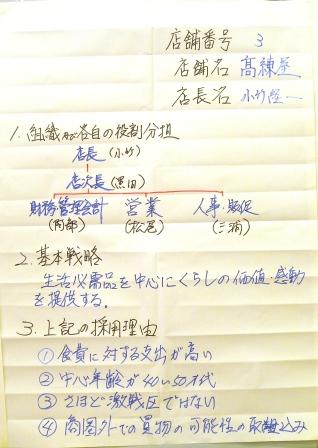 店舗番号 3
店舗名 高練屋
店長名 小竹
1. 組織及び各自の役割分担
店長(小竹)
店次長(黒田)
財務・管理会計 営業 人事・販促
(阿部) (松尾) (三浦)
2. 基本戦略
生活必需品を中心にくらしの価値・感動
を提供する。
3. 上記の採用理由
① 食費に対する支出が高い
② 中心年齢が40い50才代
③ さほど激戦区ではない
④ 商圏外での買物の可能性の取り込み